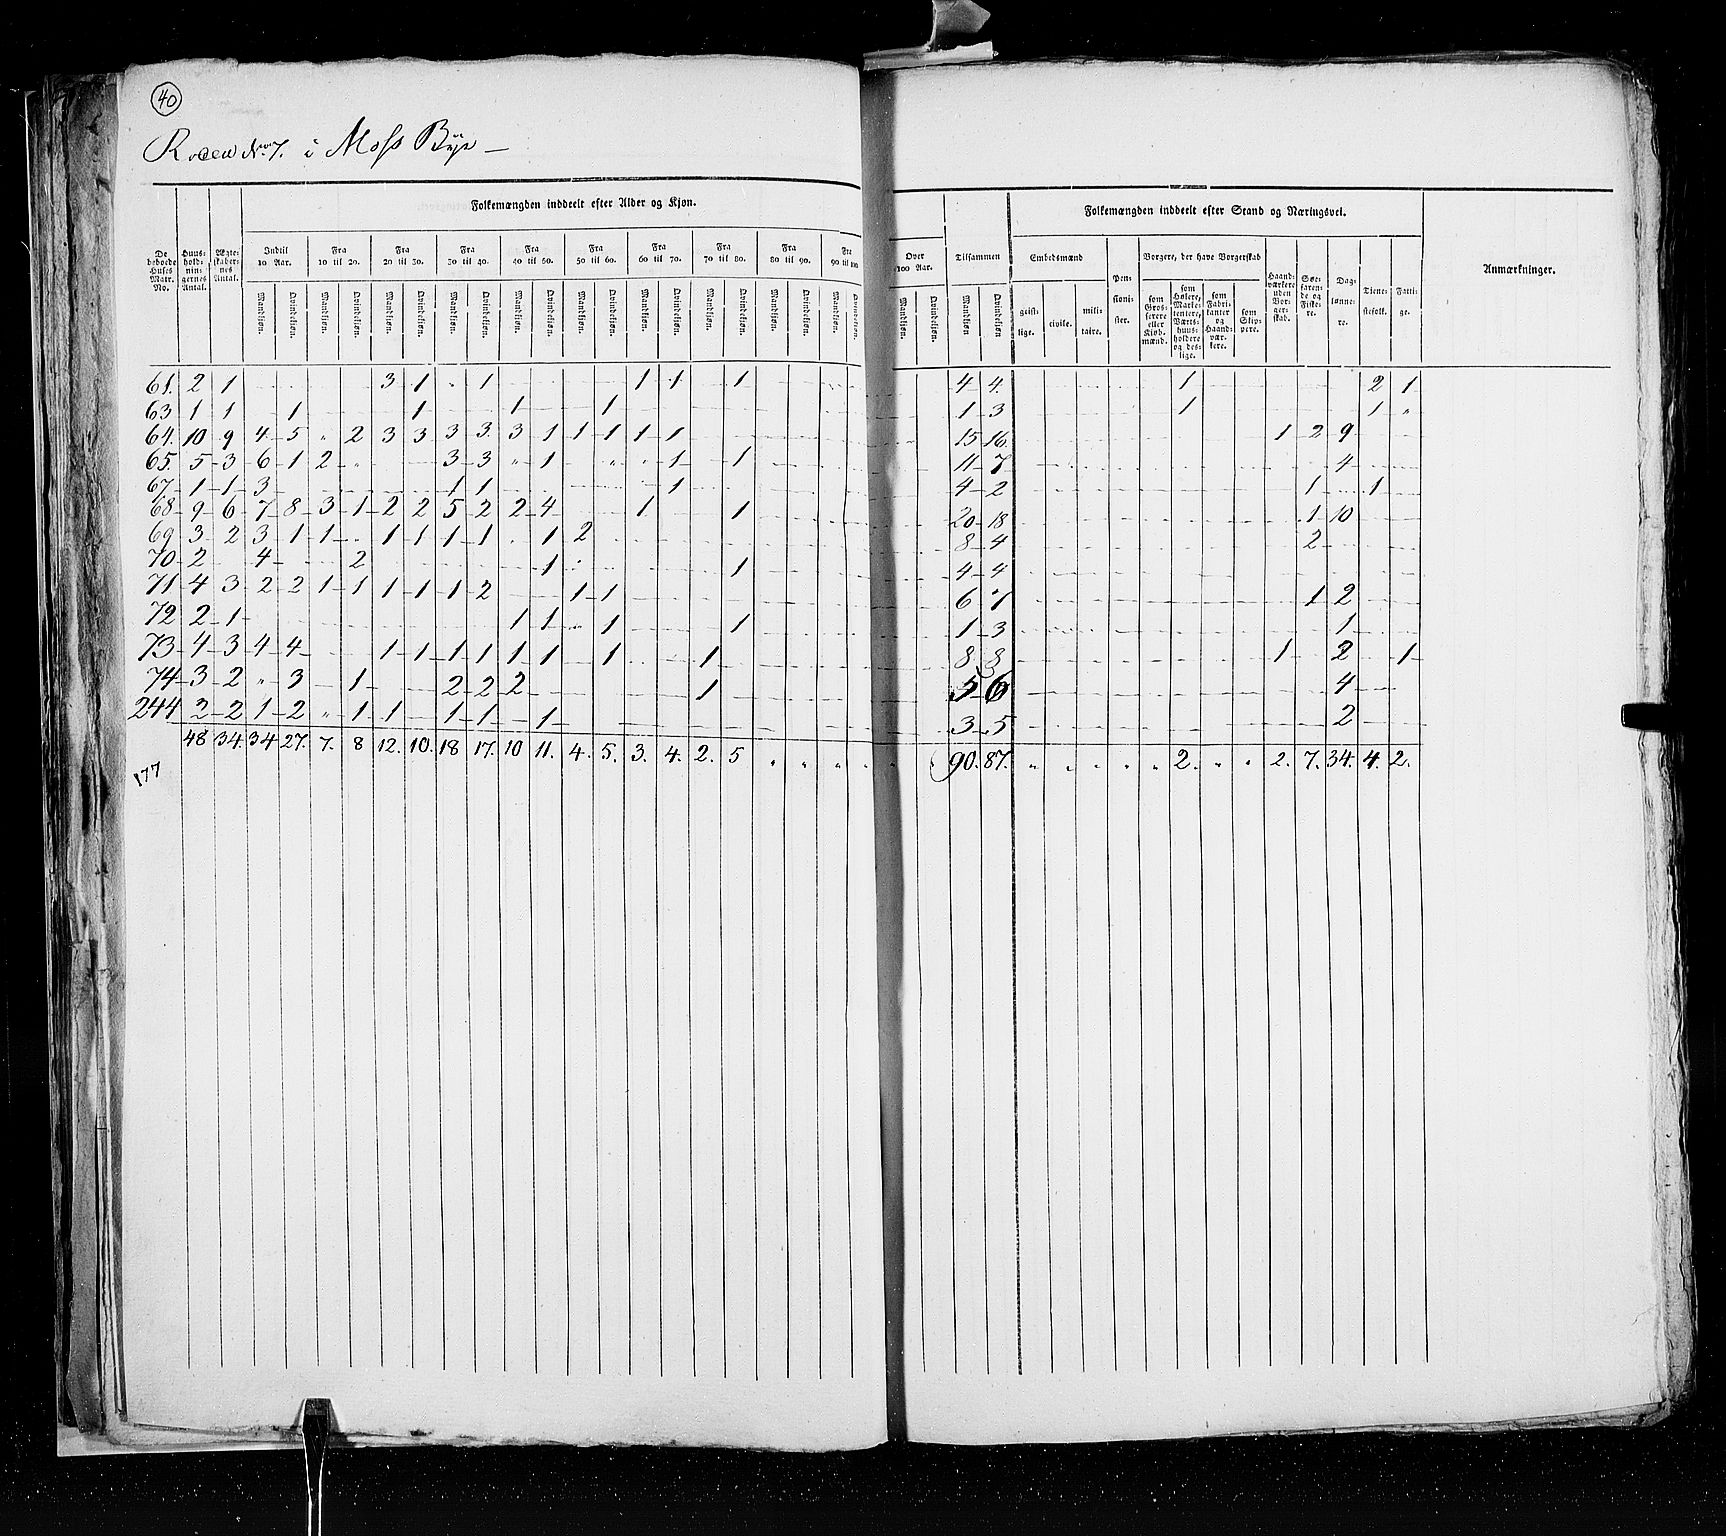 40
Roden No 7. i Moss Bÿe
Folkemængden inddeelt efter Alder og Kjøn.
Folkemængden inddeelt efter Stand og Næringsvei.
De beboede Huses Matr. No.
Huus-hold-nin-gernes Antal.
Ægte-skaber-nes Antal.
Indtil 10 Aar.
Fra 10 til 20.
Fra 20 til 30.
Fra 30 til 40.
Fra 40 til 50.
Fra 50 til 60.
Fra 60 til 70.
Fra 70 til 80.
Fra 80 til 90.
Fra 90 til 100
Over 100 Aar.
Tilsammen
Embedsmænd
Pen-sioni-ster.
Borgere, der have Borgerskab
Haand-værkere uden Bor-ger-skab.
Søe-faren-de og Fiske-re.
Dag-lønne-re.
Tiene-stefolk.
Fatti-ge.
Anmærkninger.
Mandkjøn. Qvindekjøn. Mandkjøn. Qvindekjøn. Mandkjøn. Qvindekjøn. Mandkjøn. Qvindekjøn. Mandkjøn. Qvindekjøn. Mandkjøn. Qvindekjøn. Mandkjøn. Qvindekjøn. Mandkjøn. Qvindekjøn. Mandkjøn. Qvindekjøn. Mandkjøn. Qvindekjøn. Mandkjøn. Qvindekjøn. Mandkjøn Qvindekjøn
geist-lige.
civile.
mili-taire.
som Gros-serere eller Kjøb-mænd.
som Høkere, Marke-tentere, Værts-huus-holdere og des-lige.
som Fabri-kanter og Haand-vær-kere.
som Skip-pere.
61. 2 1 3 1 " 1 1 1 1 4 4. 1 2 1
63 1 1 1 1 1 1 1 3 1 1 "
64. 10 9 4 5 " 2 3 3 3 3 3 1 1 1 1 1 15 16. 1 2 9
65. 5 3 6 1 2 " 3 3 " 1 " " 1 1 11 7 4
67 1 1 3 1 1 1 4 2 1 1
68 9 6 7 8 3 1 2 2 5 2 2 4 1 1 20 18 1 10
69 3 2 3 1 1 " 1 1 1 1 " 1 2 8 4 2
70 2 4 2 1 1 4 4
71 4 3 2 2 1 1 1 1 1 2 1 1 6 7 1 2
72 2 1 1 1 " 1 1 1 3 1
73 4 3 4 4 1 1 1 1 1 1 1 1 8 8 1 2 1
74 3 2 " 3 1 2 2 2 1 5 6 4
244 2 2 1 2 " 1 1 1 1 1 3 5 2
48 34. 34 27. 7. 8 12. 10. 18 17. 10 11. 4. 5. 3. 4. 2. 5 " " " " 90. 87. " " " " " 2. " " 2. 7. 34. 4. 2.
177